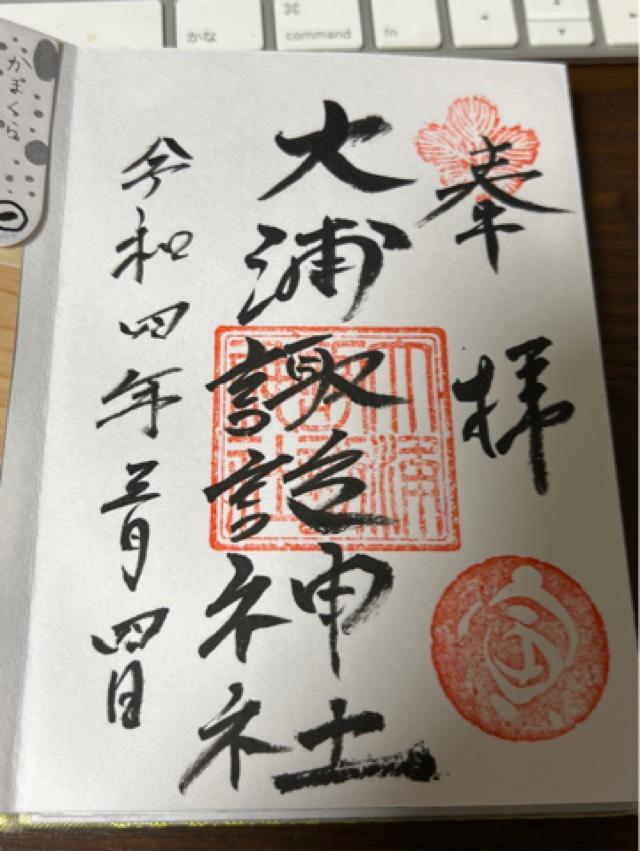 奉拝
大浦諏訪神社
令和四年三月四日
かまくら
かな
⌘
command
fn